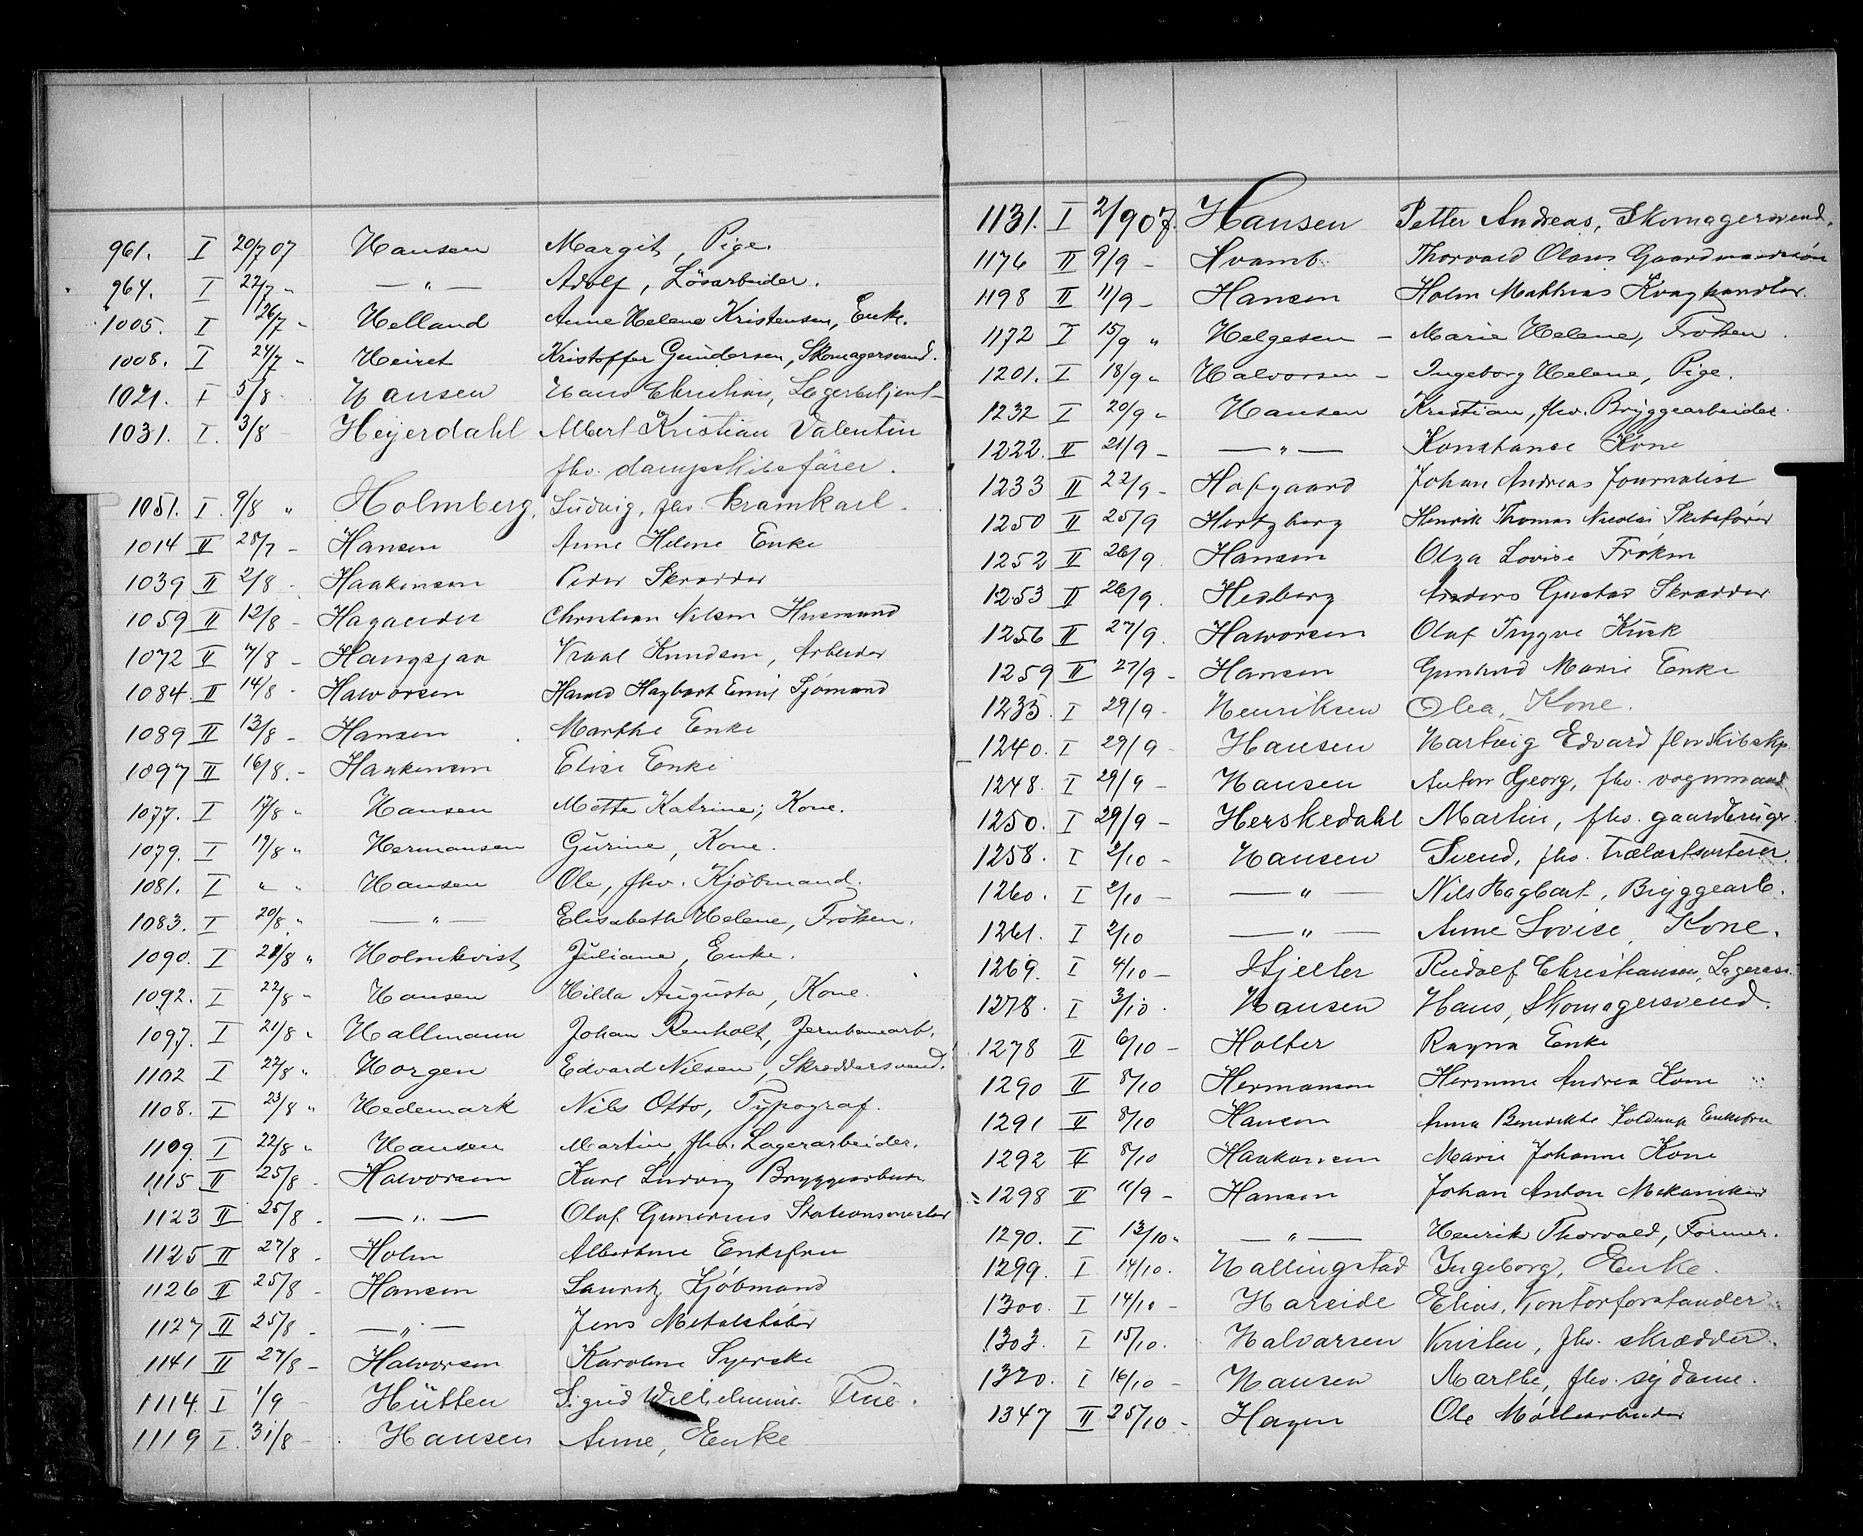 961. I 20/7 07 Hansen Margit, Pige.
964. I 22/7 " — " — Adolf, Løsarbeider.
1005. I 26/7 " Helland Anne Helene Kristensen, Enke.
1008. I 24/7 " Heiret Kristoffer Gundersen, Skomagersvend.
1021. I 5/8 Hansen Hans Christian, Lagerbetjent
1031. I. 3/8 Heyerdahl Albert Kristian Valentin
fhv. dampskibsfører.
1051. I. 9/8 " Holmberg, Ludvig, fhv. kramkarl.
1014 II 28/7 - Hansen Anne Helene Enke
1039 II 2/8 - Haakensen Peder Skrædder
1059 II 12/8 - Christian Nilsen Husmand
1072 II 7/8 - Knudsen, Arbeider
1084 II 14/8 - Halvorsen Harald Hagbart Emil Sjömand
1089 II 13/8 - Hansen Marthe Enke
1097 II 16/8. - Haakensen Elise Enke
1077. I 17/8 " Hansen Mette Katrine, Kone.
1079. I 17/8 " Hermansen Gurine, Kone.
1081. I " " Hansen Ole, fhv. Kjøbmand.
1083. I 20/8 " — " — Elisabeth Helene, Frøken.
1090. I 21/8 " Holmkvist, Juliane, Enke.
1092. I 22/8 " Hansen Hilda Augusta, Kone.
1097. I 21/8 " Hallmann Johan Renholt, Jernbanearb.
1102 I 22/8 " Horgen Edvard Nilsen, Skreddersvend.
1108. I 23/8 " Hedemark Nils Otto, Typograf.
1109. I 22/8 " Hansen Martin, fhv. Lagerarbeider.
1115 II 25/8 - Halvorsen Karl Ludvig Bryggearbeider
1123 II 25/8 - — " — Olaf Gunerius Stationsmester
1125 II 27/8 - Holm Albertine Enkefru
1126 II 25/8 - Hansen Lauritz Kjöbmand
1127 II 25/8 - — " — Jens Metalstøber
1141 II 27/8 - Halvorsen Karoline Syerske
1114 I 1/9 Hütten Sigrid Wilhelmine Frue.
1119 I. 31/8 - Hansen Anne, Enke
1131. I 2/9 07. Hansen Petter Andreas, Skomagersvend.
1176 II 9/9 - Hvamb Thorvald Olaus Gaardmandssön
1198 II 11/9 - Hansen Holm Mathias Kvæghandler.
1172 I 15/9 " Helgesen - Marie Helene, Frøken.
1201. I 18/9 " Halvorsen - Ingeborg Helene, Pige.
1232 I 20/9 " Hansen Kristian, fhv. Bryggearbeider.
1222. II 21/9 - — " — Konstanse Kone
1233 II 22/9 - Hofgaard Johan Andreas Journalist
1250 II 25/9 Hertzberg Henrik Thomas Nicolai Skibsfører
1252 II 26/9. Hansen Olga Lovise Frøken
1253 II 26/9. Hedberg Anders Gustav Skrædder
1256 II 27/9. Halvorsen Olaf Trygve Kusk
1259 II 27/9 - Hansen Gunhild Marie Enke
1235. I 29/9 - Henriksen Olea, Kone.
1240. I 29/9 - Hansen Hartvig Edvard fhv skibskp.
1248. I 29/9 - Hansen Anton Georg, fhv. vognmand
1250. I 29/9 - Herskedahl Martin, fhv. gaardbruger.
1258. I 2/10 - Hansen Svend, fhv. trælastsorterer.
1260. I 2/10 - — " — Nils Hagbart, Bryggearb.
1261. I 2/10 — " — Anne Lovise, Kone.
1269. I 4/10 - Hjelter Rudolf Christiansen, Lagerass.
1278. I 3/10. Hansen Hans, Skomagersvend.
1278 II 6/10 - Holter Ragna Enke
1290 II 8/10 Hermansen Hermine Andrea Kone
1291 II 8/10 Hansen Anna Benedikte Enkefru
1292 II 8/10 Haakonsen Marie Johanne Kone
1298 II 11/9 - Hansen Johan Anton Mekaniker
1290. I 13/10 " — " — Henrik Thorvald, Former.
1299. I 14/10. Hallingstad Ingeborg, Enke.
1300. I 14/10 - Hareide Elias, Kontorforstander
1303. I 15/10. Halvarsen Kristen, fhv. skrædder.
1320. I 16/10 - Hansen Marthe, fhv. sydame.
1347 II 25/10 - Hagen Ole Møllearbeider